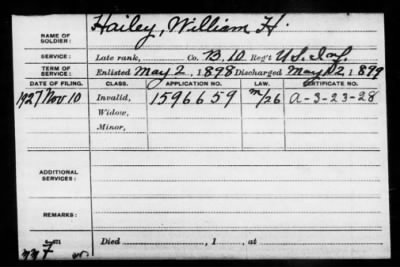 Hailey, William H.
NAME OF SOLDIER:
SERVICE: Late rank, Co. B. 10 Reg't U.S. Inf.
TERM OF SERVICE: Enlisted May 2, 1898 Discharged May 12, 1899
DATE OF FILING. CLASS. APPLICATION NO. LAW. CERTIFICATE NO.
1927 Nov 10 Invalid, 1596659 m/26 A-3-23-28
Widow,
Minor,
ADDITIONAL SERVICES:
REMARKS:
Died , 1 , at